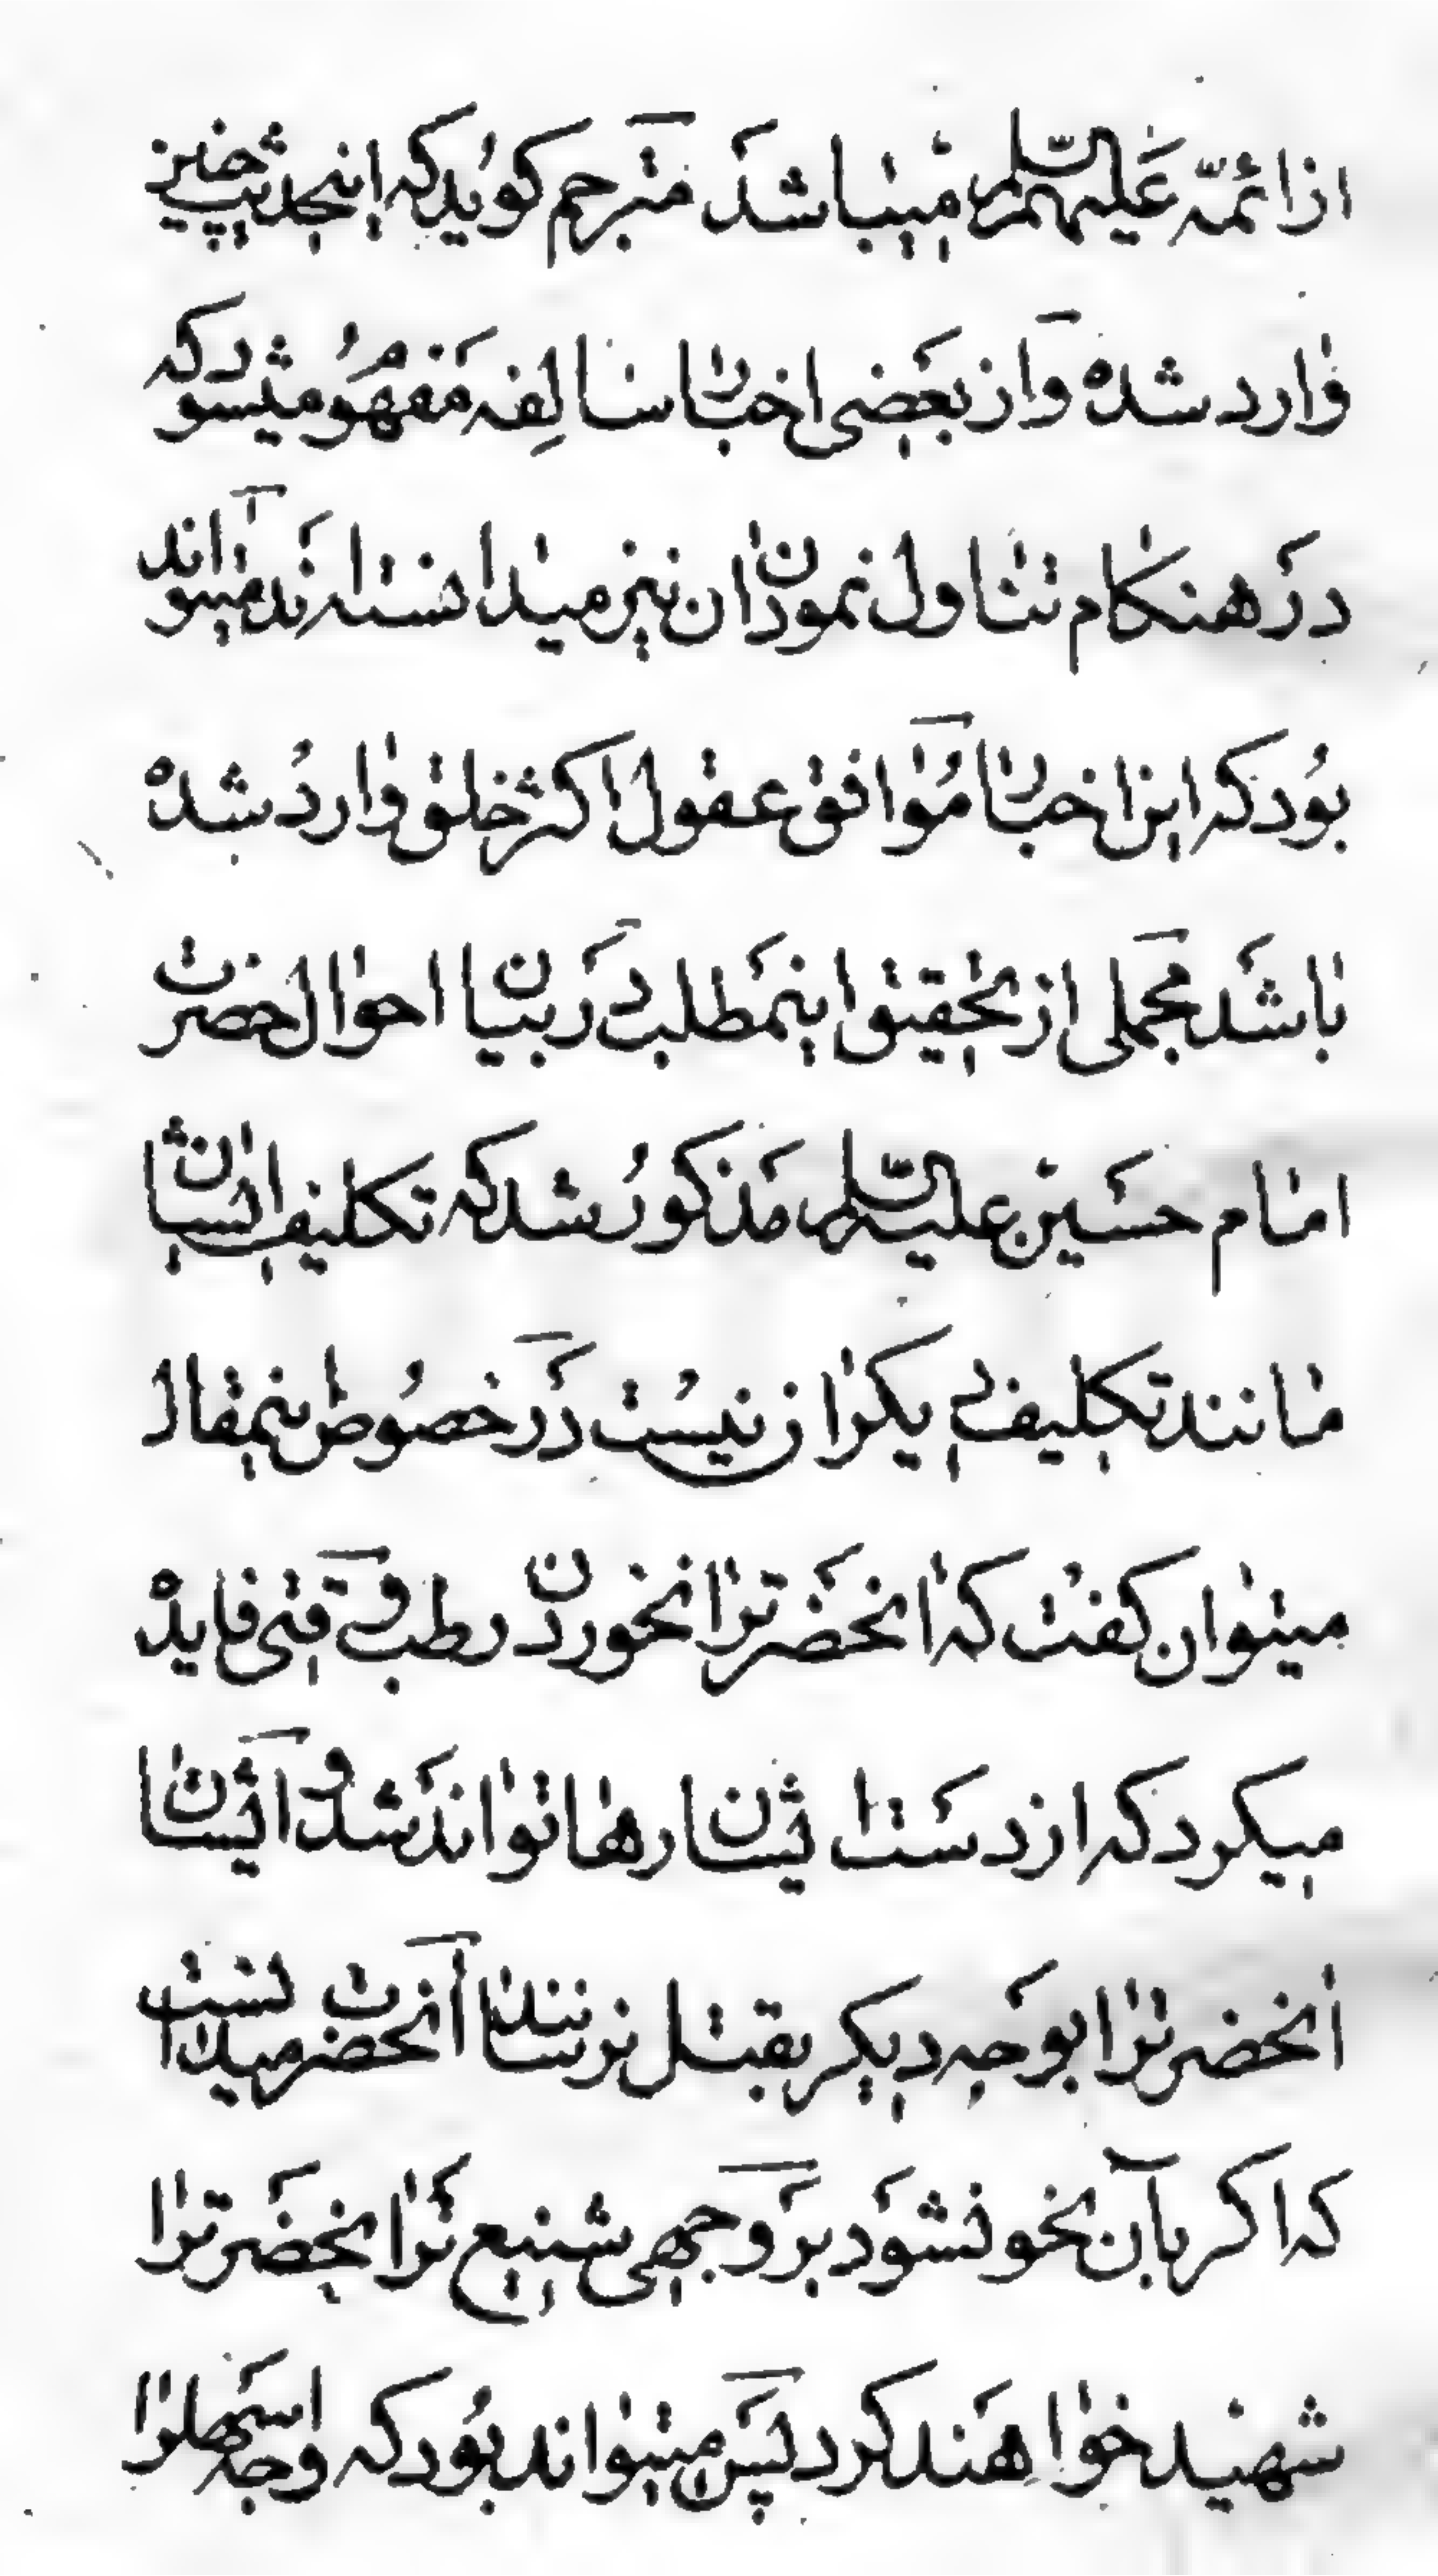 از ائمّه عَلیهم السّلم میباشد مترجم کویُد که اینحدیث چنین
وارد شده و از بَعضی اخبار سالِفه مَفهُوم میشود که
دَر هنکام تناول نمودن ان نیز میدانسته‌اند میتواند
بوُد که این اخبار مُوافق عقول اکثر خلق واردُ شده
باشَد مجملی از تحقیق اینمَطلب دَر بیان احوال حضرت
امام حسَین علیه السّلم مَذکورُ شد که تکلیف ایشان
مانند تکلیف دیکران نیسُت دَر خصُوص اینمقال
میتوان کفت که انحضَرترا نخوردن رطب وقتی فایده
میکرد که از دسَت ایشان رها تواندَ شد و ایشان
انحضرترا بوجَه دیکر بقتل نرسانند انحضرت میدانست
که اکر بآن نحو نشَود برَ وجهی شنیع ترَ انحضَرترا
شهید خواهَند کرد پسَ میتواند بوُد که وجه اسَهلرا